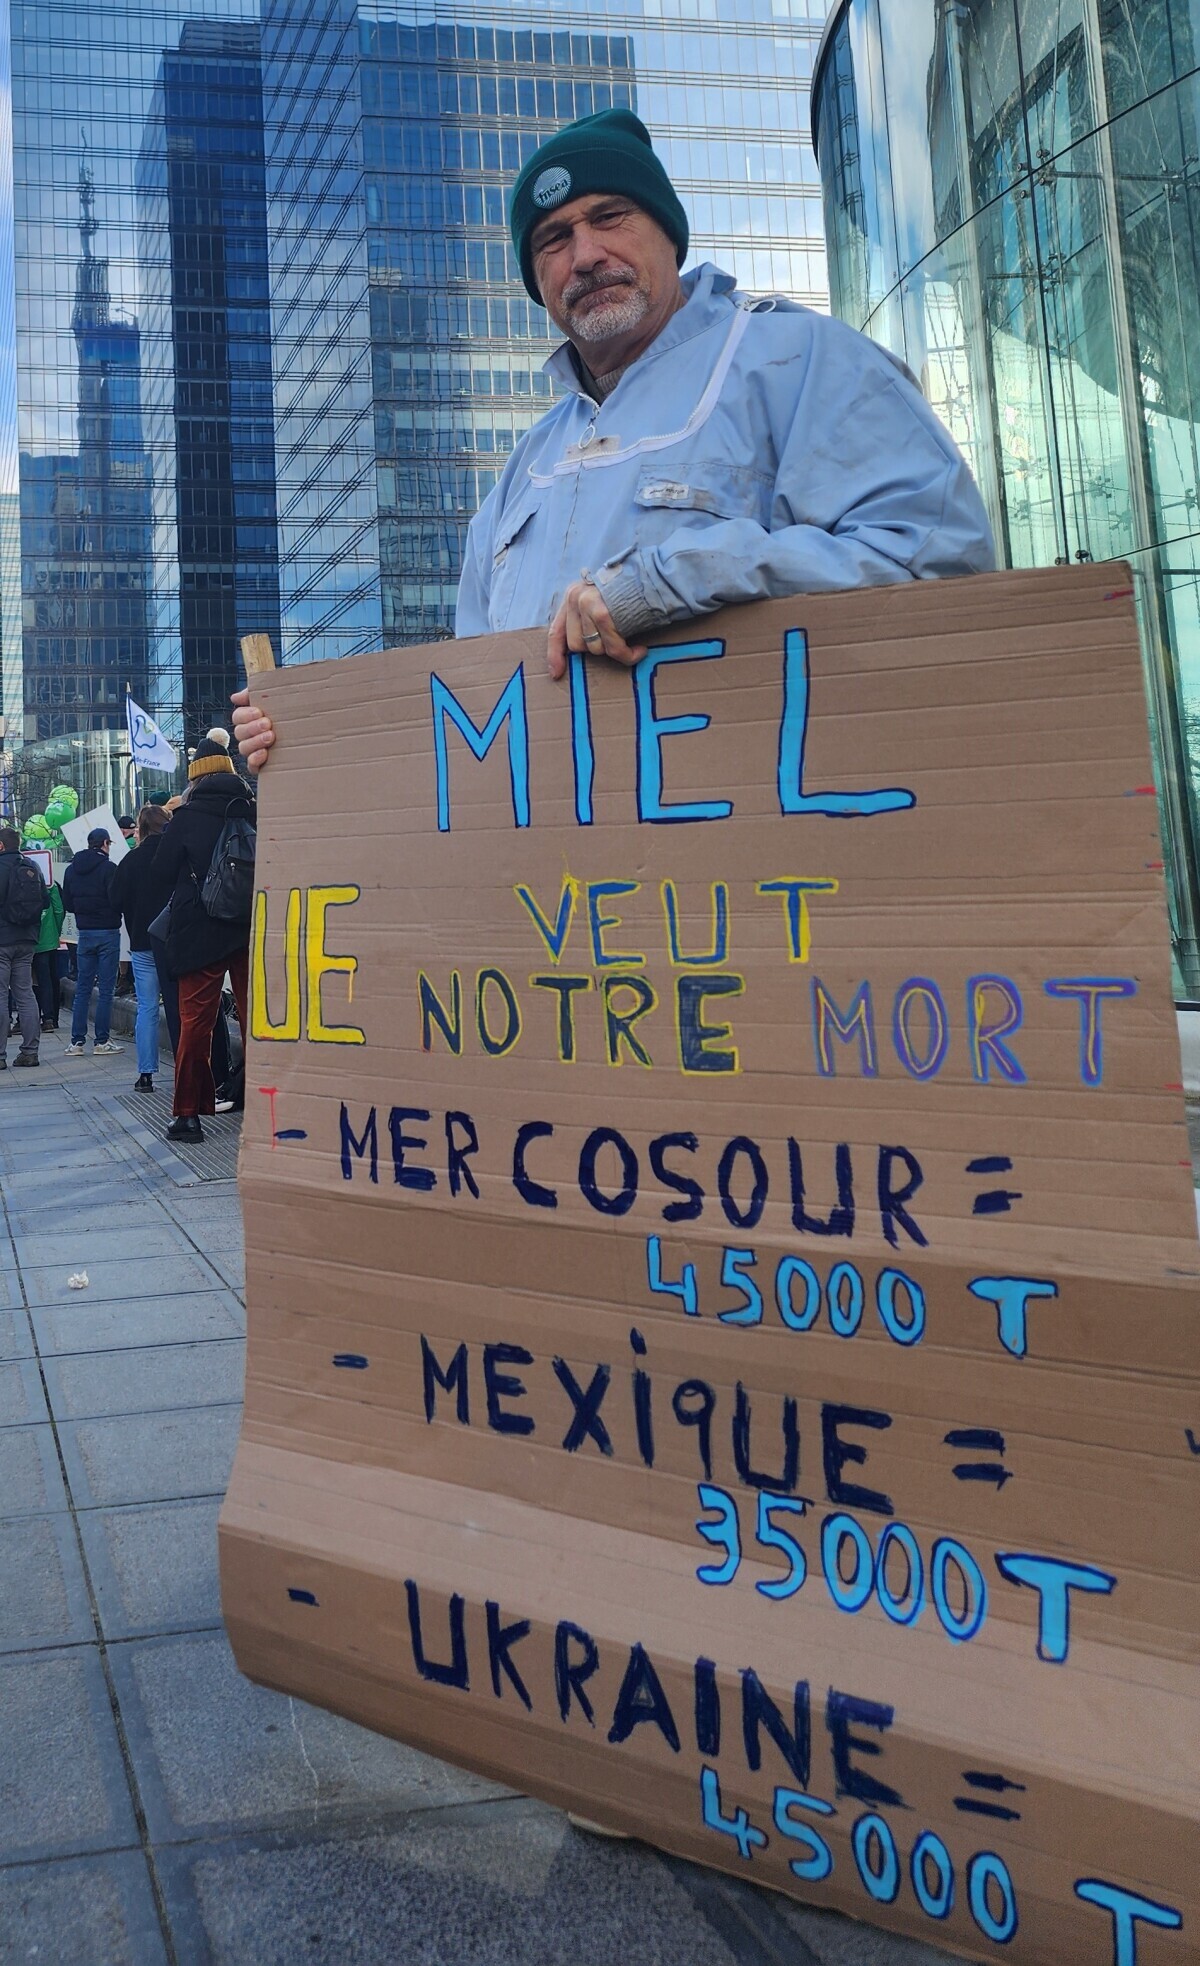 fnsea
MIEL
UE VEUT
NOTRE MORT
- MERCOSOUR =
45000 T
- MEXIQUE =
35000 T
- UKRAINE =
45000 T